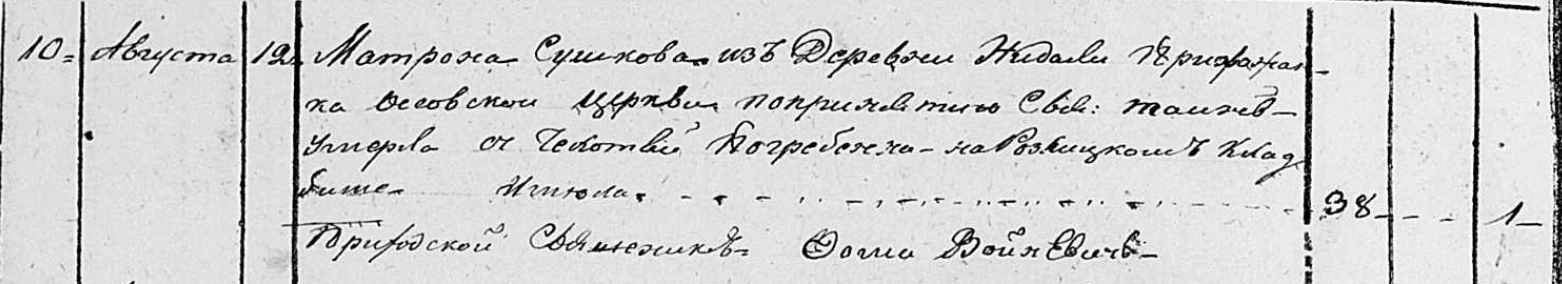 10= Августа 12. Матрона Сушкова изъ Деревни Жидали Прихожан-
ка Осовской Церкви попринятию Свя: таинъ-
Умерла от Чекотьй Погребенна - на Розмицкомъ Клад
бише- Имиола. 38 - - - 1-
Приходской Священикъ. Фома Войневичъ-